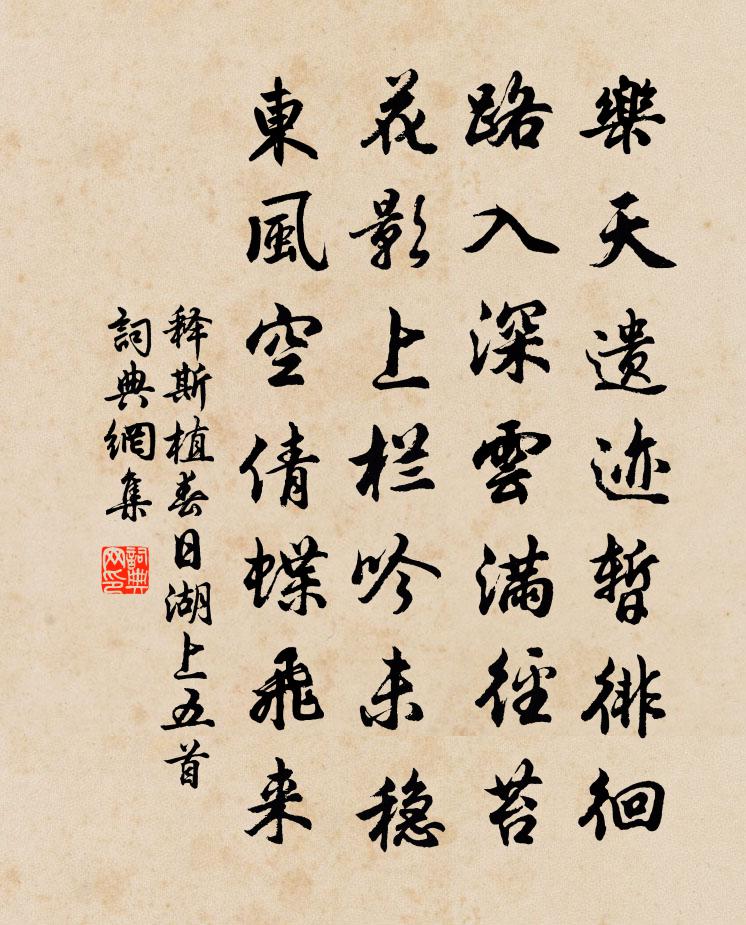 樂天遗迹暫徘徊
路入深雲满徑苔
花影上栏吟未稳
東風空倩蝶飛来
释斯植春日湖上五首
詞典網集
詞典网印